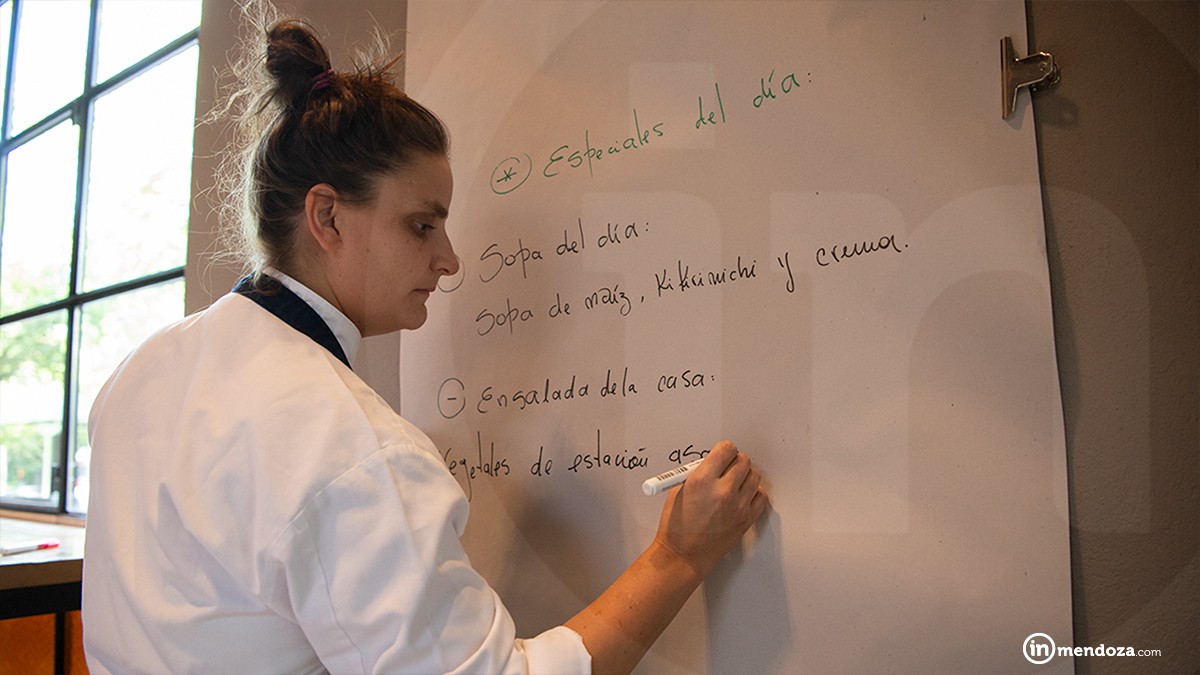 * Especiales del día:
Sopa del día:
Sopa de maíz, Kikirimichi y crema.
- Ensalada de la casa:
Vegetales de estación asa
in mendoza.com